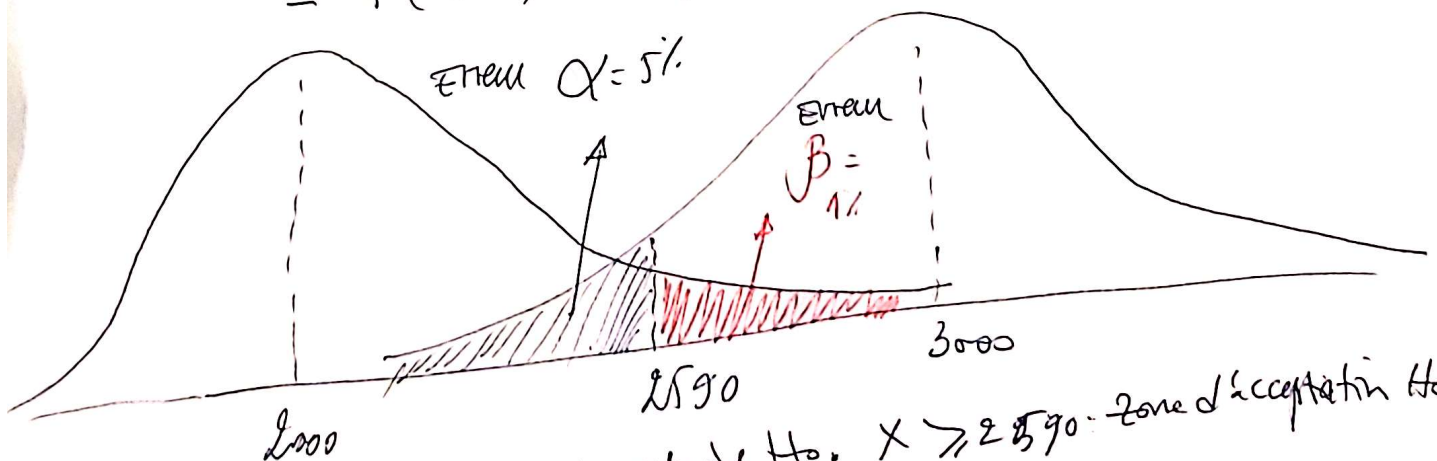 Erreur α = 5%
Erreur
β =
1%
2000
2590
3000
H₀. X ⩾ 2590. Zone d'acceptation H₀